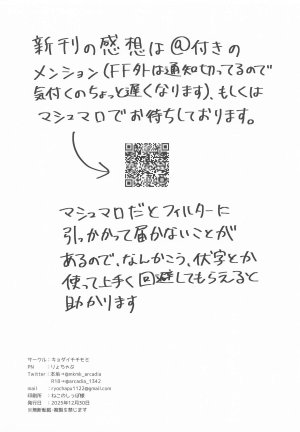 新刊の感想は@付きの
メンション(FF外は通知切ってるので
気付くのちょっと遅くなります)、もしくは
マシュマロでお待ちしております。
マシュマロだとフィルターに
引っかかって届かないことが
あるので、なんかこう、伏字とか
使って上手く回避してもらえると
助かります
サークル：キョダイチチモミ
PN　：りょちゃぷ
Twitter：本垢→@mknk_arcadia
R18→@arcadia_1342
mail　：ryochapu1122@gmail.com
印刷所　：ねこのしっぽ様
発行日　：2025年12月30日
※無断転載・複製を禁じます